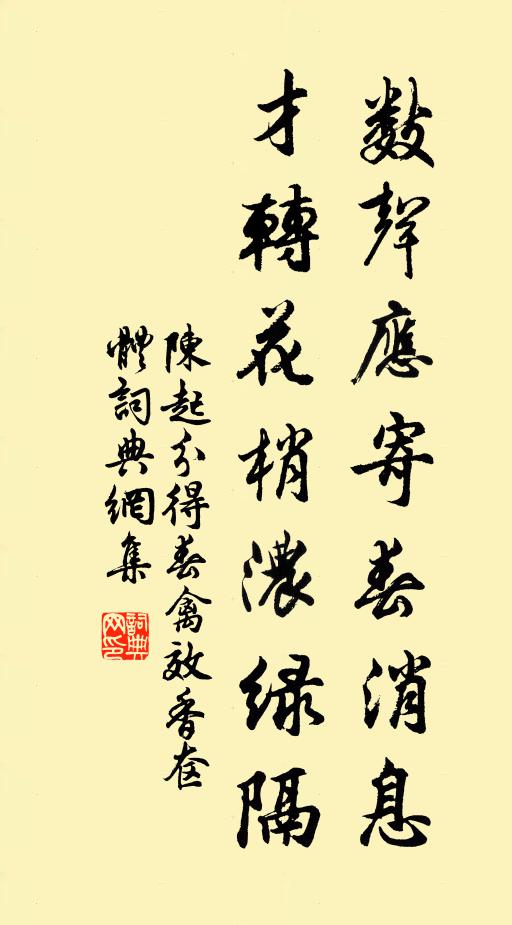 數聲應寄春消息
才轉花梢濃綠隔
陳起分得春禽效香奩
體詞典網集
詞典
网印